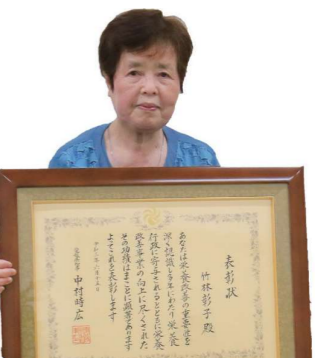 表彰状
竹林彰子殿
あなたは栄養改善の重要性を
深く認識し多年にわたり栄養
行政に寄与されるとともに栄養
改善事業の向上に尽くされた
その功績はまことに顕著であります
よってこれを表彰します
中村時広